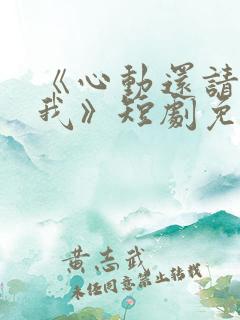 《心動還請
我》短劇免
黃志武
未经同意禁止转载